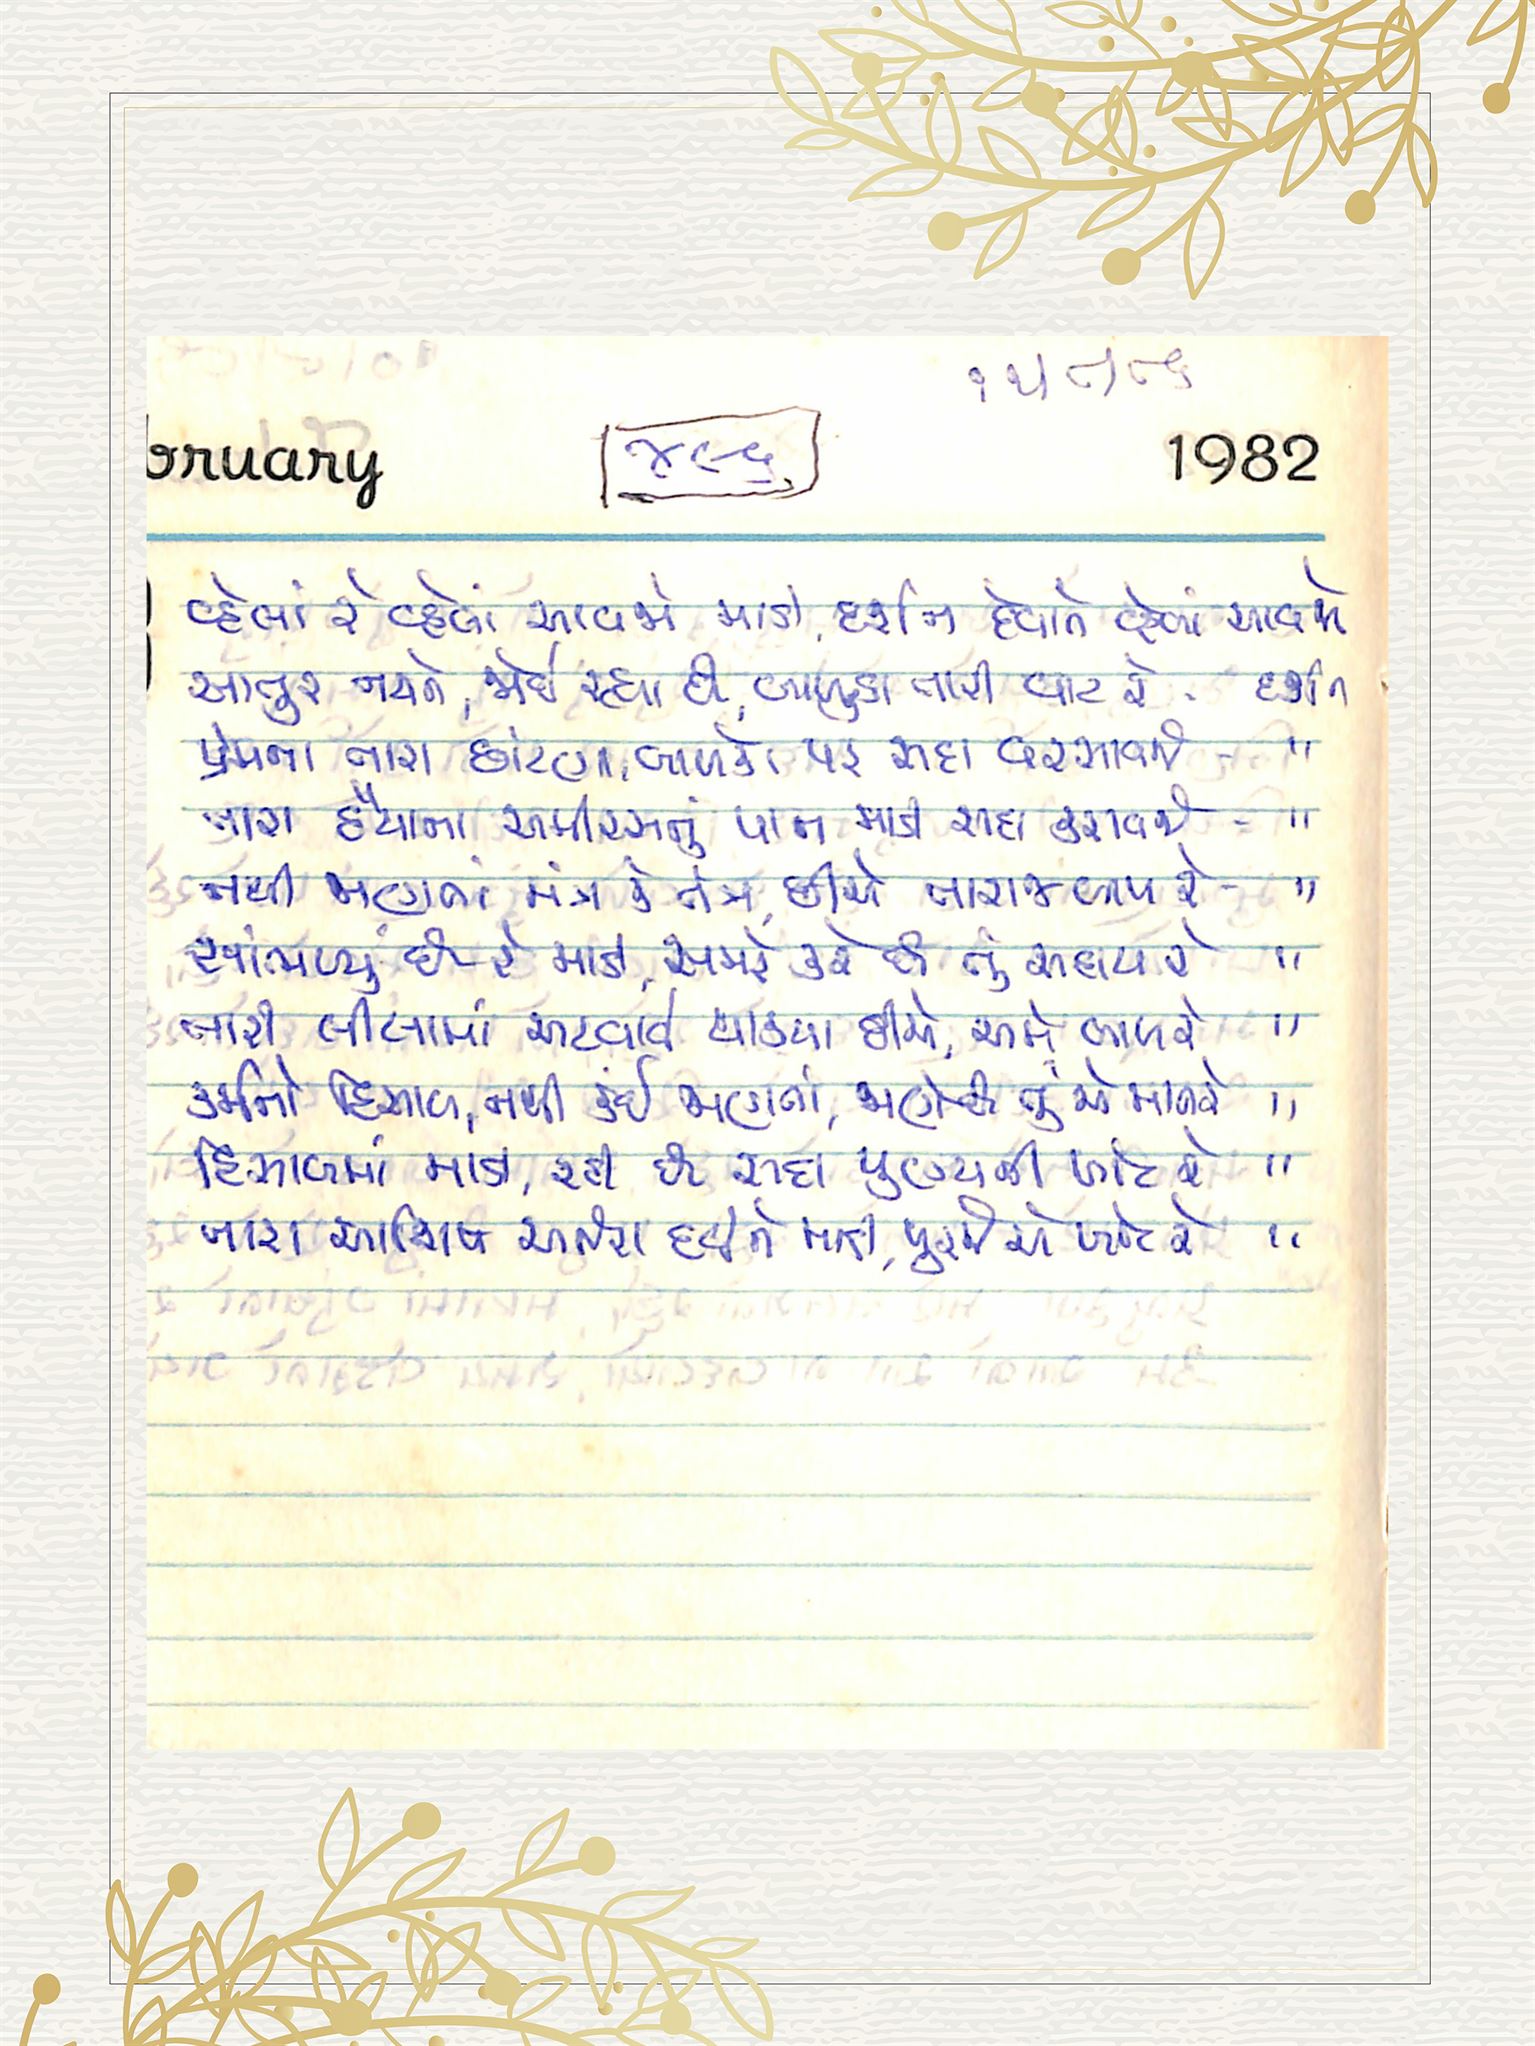 ૧૫/૮/૮૬
bruary ૪૯૬ 1982
વ્હેલાં રે વ્હેલાં આવજો માડી, દર્શન દેવાને વ્હેલાં આવજો
આતુર નયને, જોઈ રહ્યા છે, બાળુડા તારી વાટ રે - દર્શન
પ્રેમના તારા છાંટણા, બાળકો પર સદા વરસાવજે - "
તારા હૈયાના અમીરસનું પાન માડી સદા કરાવજે - "
નથી જાણતાં મંત્ર કે તંત્ર, છીએ તારાજ બાળ રે - "
સાંભળ્યું છે રે માડી, સમરે કરે છે તું સહાય રે "
તારી લીલામાં અટવાઈ થાક્યા છીએ, અમે બાળ રે "
કર્મનો હિસાબ, નથી કંઈ જાણતાં, જાણે છે તું એ માત રે "
હિસાબમાં માડી, રહી છે સદા પુણ્યની ખોટ રે "
તારા આશિષ અનેરા દઈને માડી, પુરજે એ ખોટ રે "